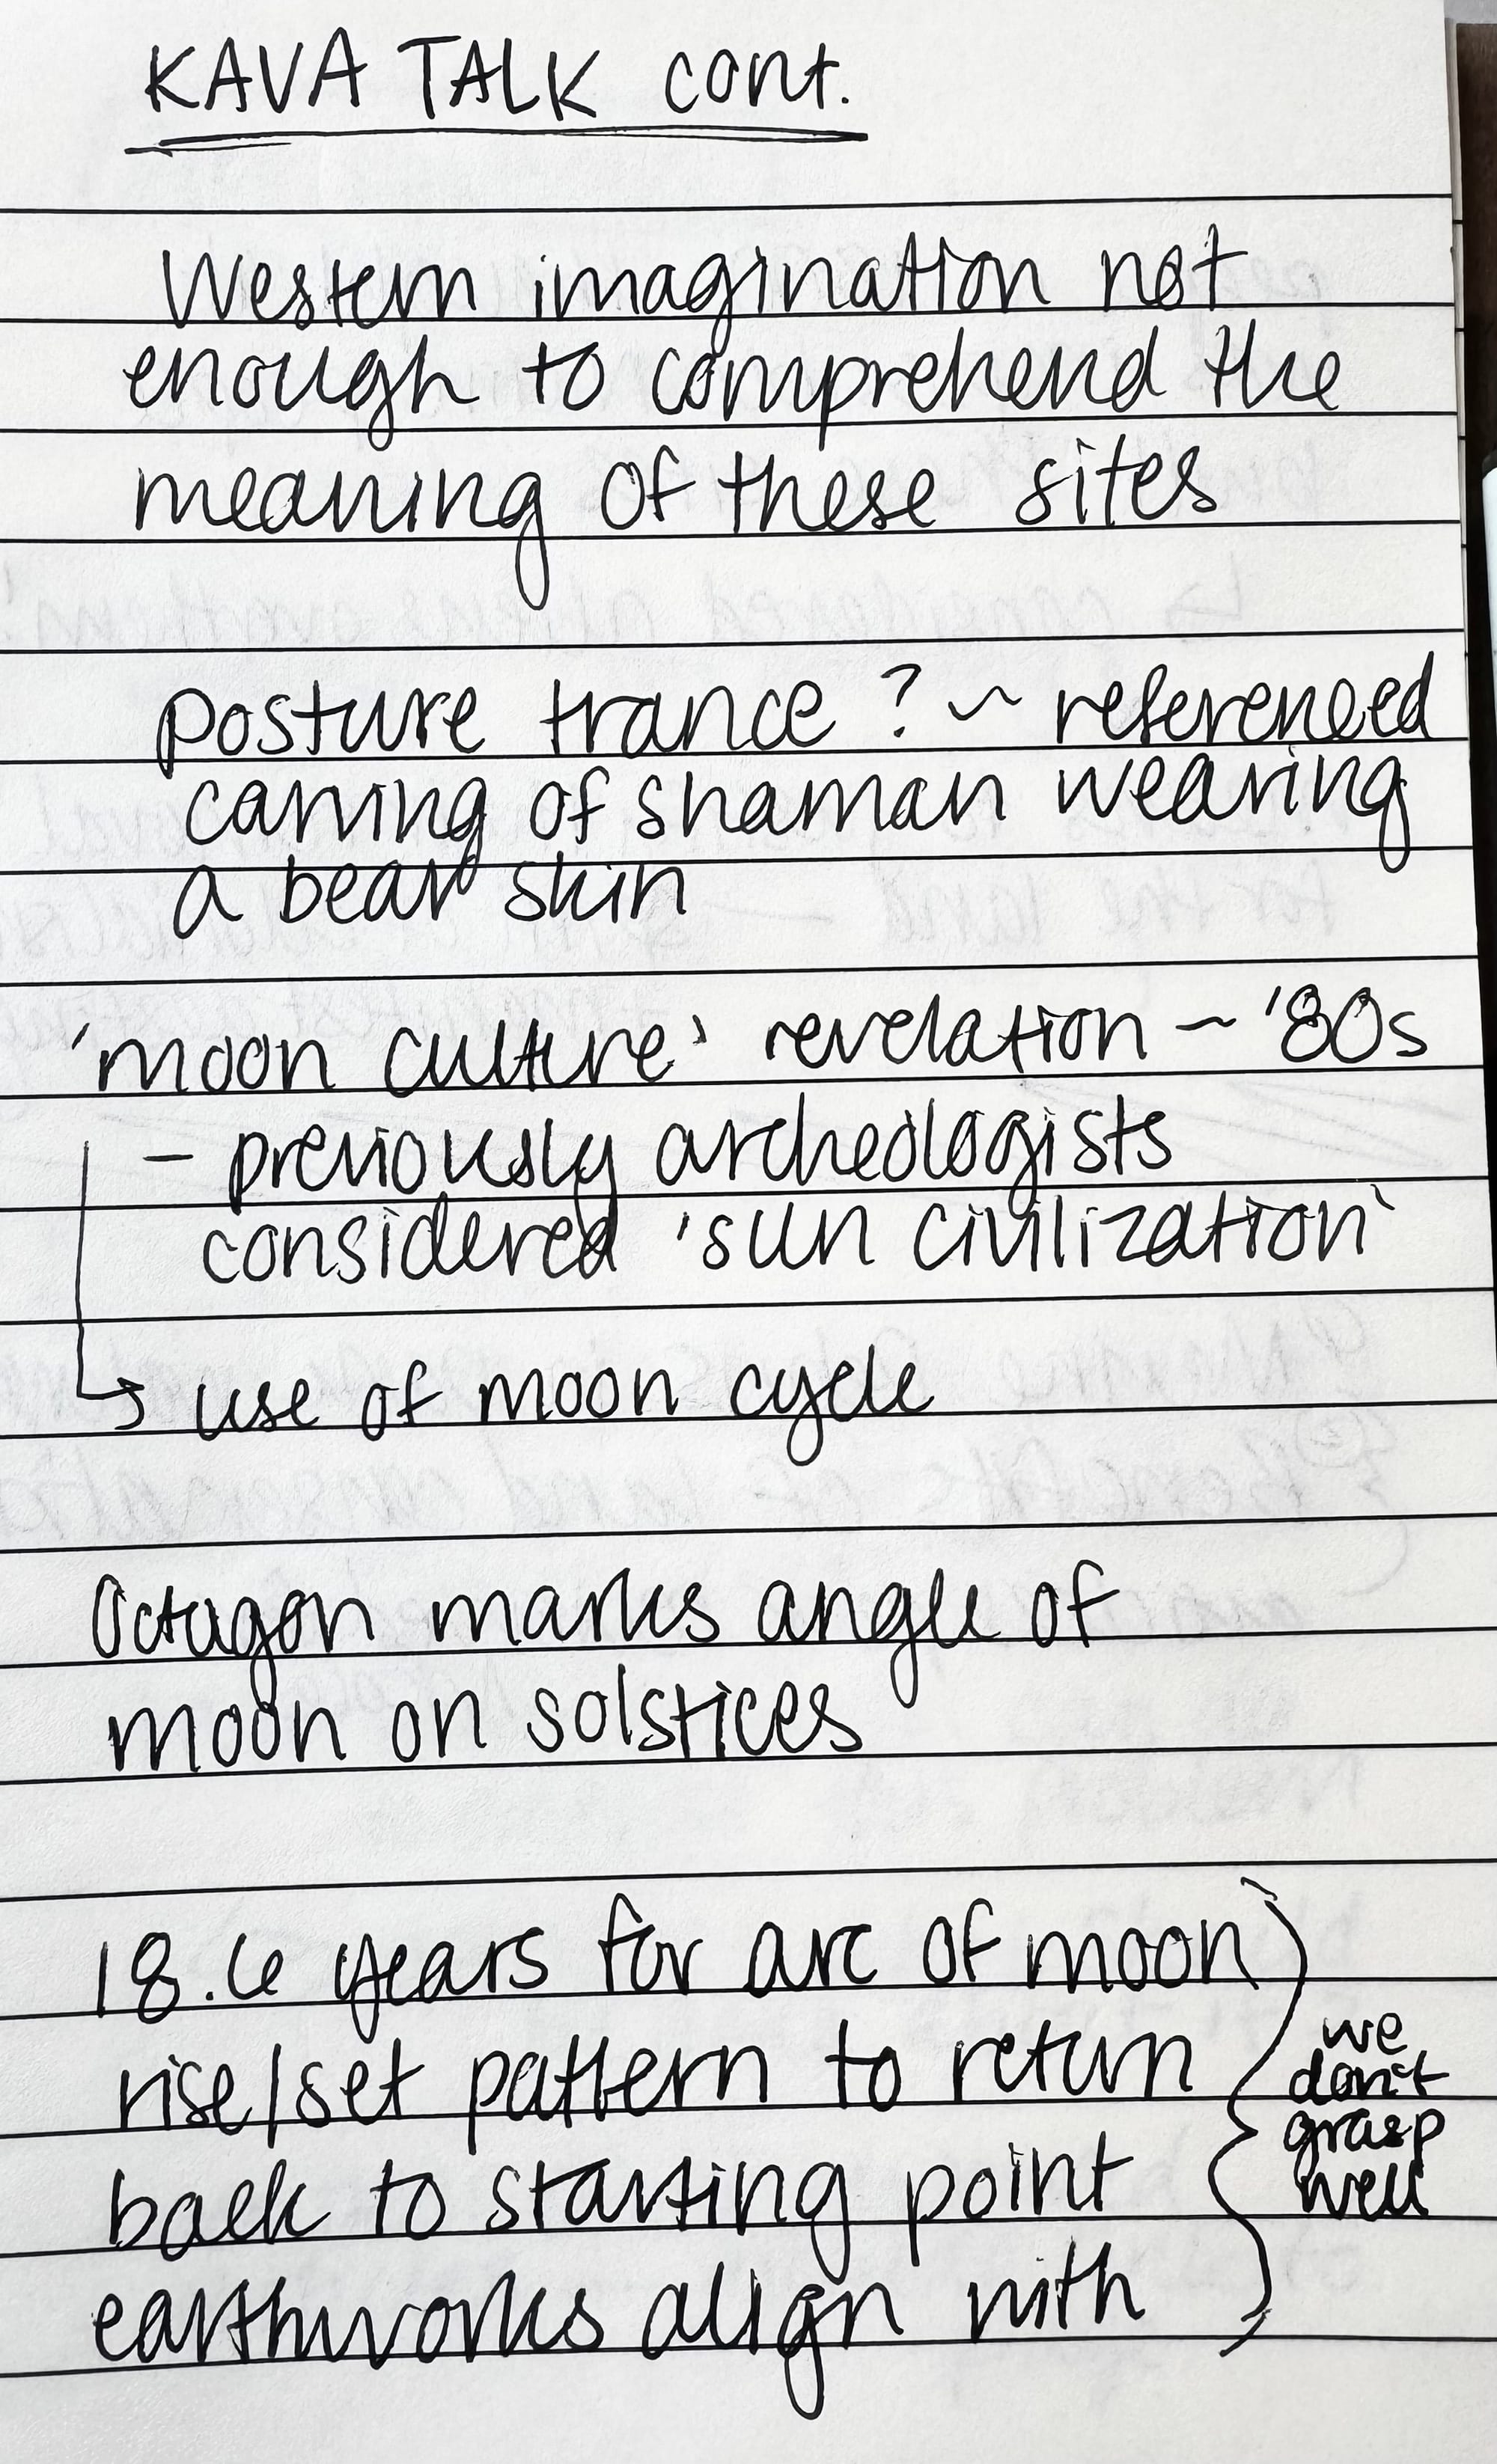 KAVA TALK cont.
Western imagination not
enough to comprehend the
meaning of these sites
posture trance? ~ referenced
carving of shaman wearing
a bear skin
'moon culture' revelation ~ '80s
- previously archeologists
considered 'sun civilization'
↳ use of moon cycle
Octagon marks angle of
moon on solstices
18.6 years for arc of moon
rise/set pattern to return
back to starting point
earthworks align with
we
don't
grasp
well